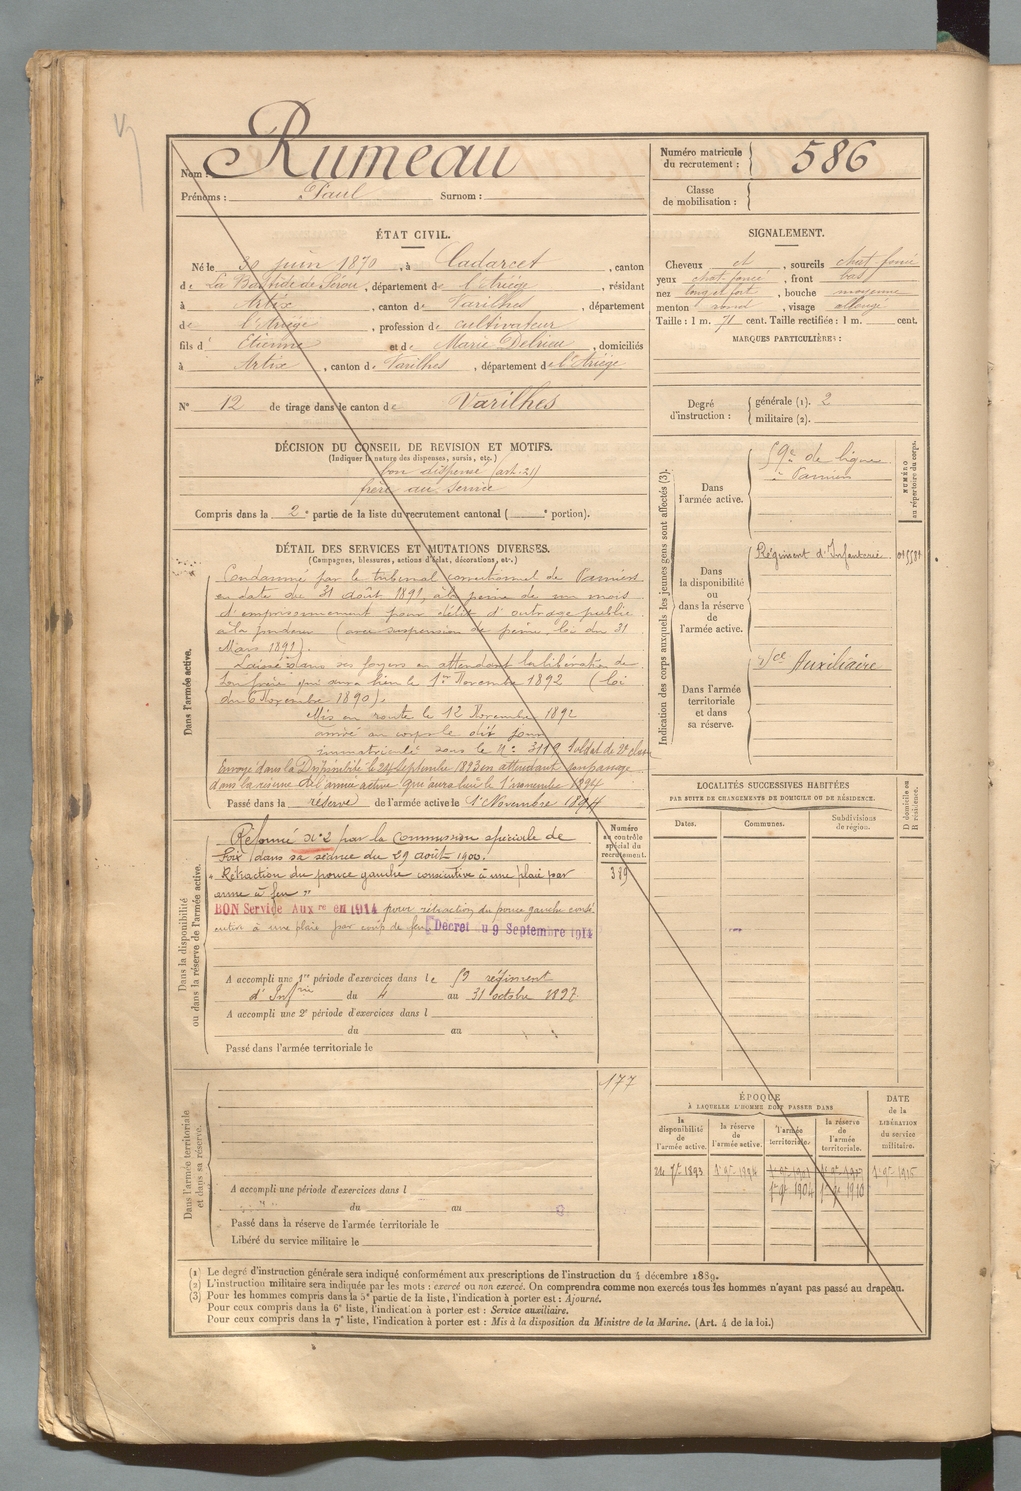 Nom : Rumeau
Prénoms : Paul Surnom :
Numéro matricule
du recrutement : 586
Classe
de mobilisation :
ÉTAT CIVIL.
Né le 30 juin 1870, à Cadarcet, canton
de La Bastide de Sérou, département de l'Ariège, résidant
à Artix, canton de Varilhes, département
de l'Ariège, profession de cultivateur
fils d' Etienne et de Marie Delrieu, domiciliés
à Artix, canton de Varilhes, département de l'Ariège
N° 12 de tirage dans le canton de Varilhes
SIGNALEMENT.
Cheveux et, sourcils chat. foncé
yeux chat. foncé, front bas
nez long et fort, bouche moyenne
menton rond, visage allongé
Taille : 1 m. 71 cent. Taille rectifiée : 1 m. cent.
MARQUES PARTICULIÈRES :
Degré
d'instruction : générale (1). 2
militaire (2).
DÉCISION DU CONSEIL DE REVISION ET MOTIFS.
(Indiquer la nature des dispenses, sursis, etc.)
bon dispensé (art. 21)
frère au service
Compris dans la 2e partie de la liste du recrutement cantonal ( e portion).
DÉTAIL DES SERVICES ET MUTATIONS DIVERSES.
(Campagnes, blessures, actions d'éclat, décorations, etc.)
Dans l'armée active.
Condamné par le tribunal correctionnel de Pamiers
en date du 31 août 1891, à la peine de un mois
d'emprisonnement pour délit d'outrage public
à la pudeur (avec suspension de peine, loi du 31
Mars 1891).
Laissé dans ses foyers en attendant la libération de
son frère qui aura lieu le 1er Novembre 1892 (loi
du 6 Novembre 1890).
Mis en route le 12 Novembre 1892
arrivé au corps le dit jour
immatriculé sous le N° 3119 Soldat de 2e classe
Envoyé dans la Disponibilité le 24 septembre 1893 en attendant son passage
dans la réserve de l'armée active qui aura lieu le 1er novembre 1894
Passé dans la réserve de l'armée active le 1er Novembre 1894
Indication des corps auxquels les jeunes gens sont affectés (3).
NUMÉRO
au répertoire du corps.
Dans
l'armée active.
59e de ligne
à Pamiers
Dans
la disponibilité
ou
dans la réserve
de
l'armée active.
Régiment d'Infanterie
Dans l'armée
territoriale
et dans
sa réserve.
Sce Auxiliaire
Dans la disponibilité
ou dans la réserve de l'armée active.
Réformé N°2 par la Commission spéciale de
Foix dans sa séance du 29 août 1900.
"Rétraction du pouce gauche consécutive à une plaie par
arme à feu"
BON Service Auxre en 1914 pour rétraction du pouce gauche consé
cutive à une plaie par coup de feu Décret du 9 Septembre 1914
A accompli une 1re période d'exercices dans le 59 régiment
d'Infrie du 4 au 31 octobre 1897
A accompli une 2e période d'exercices dans l
du au
Passé dans l'armée territoriale le
Numéro
au contrôle
spécial du
recrutement.
389
177
LOCALITÉS SUCCESSIVES HABITÉES
PAR SUITE DE CHANGEMENTS DE DOMICILE OU DE RÉSIDENCE.
D domicile ou
R résidence.
Dates.
Communes.
Subdivisions
de région.
Dans l'armée territoriale
et dans sa réserve.
A accompli une période d'exercices dans l
du au
Passé dans la réserve de l'armée territoriale le
Libéré du service militaire le
ÉPOQUE
À LAQUELLE L'HOMME DOIT PASSER DANS
la
disponibilité
de
l'armée active.
la réserve
de
l'armée active.
l'armée
territoriale.
la réserve
de
l'armée
territoriale.
DATE
de la
LIBÉRATION
du service
militaire.
24 7bre 1893 1er 9bre 1894
1er 9bre 1904 1er 9bre 1910
(1) Le degré d'instruction générale sera indiqué conformément aux prescriptions de l'instruction du 4 décembre 1889.
(2) L'instruction militaire sera indiquée par les mots : exercé ou non exercé. On comprendra comme non exercés tous les hommes n'ayant pas passé au drapeau.
(3) Pour les hommes compris dans la 5e partie de la liste, l'indication à porter est : Ajourné.
Pour ceux compris dans la 6e liste, l'indication à porter est : Service auxiliaire.
Pour ceux compris dans la 7e liste, l'indication à porter est : Mis à la disposition du Ministre de la Marine. (Art. 4 de la loi.)